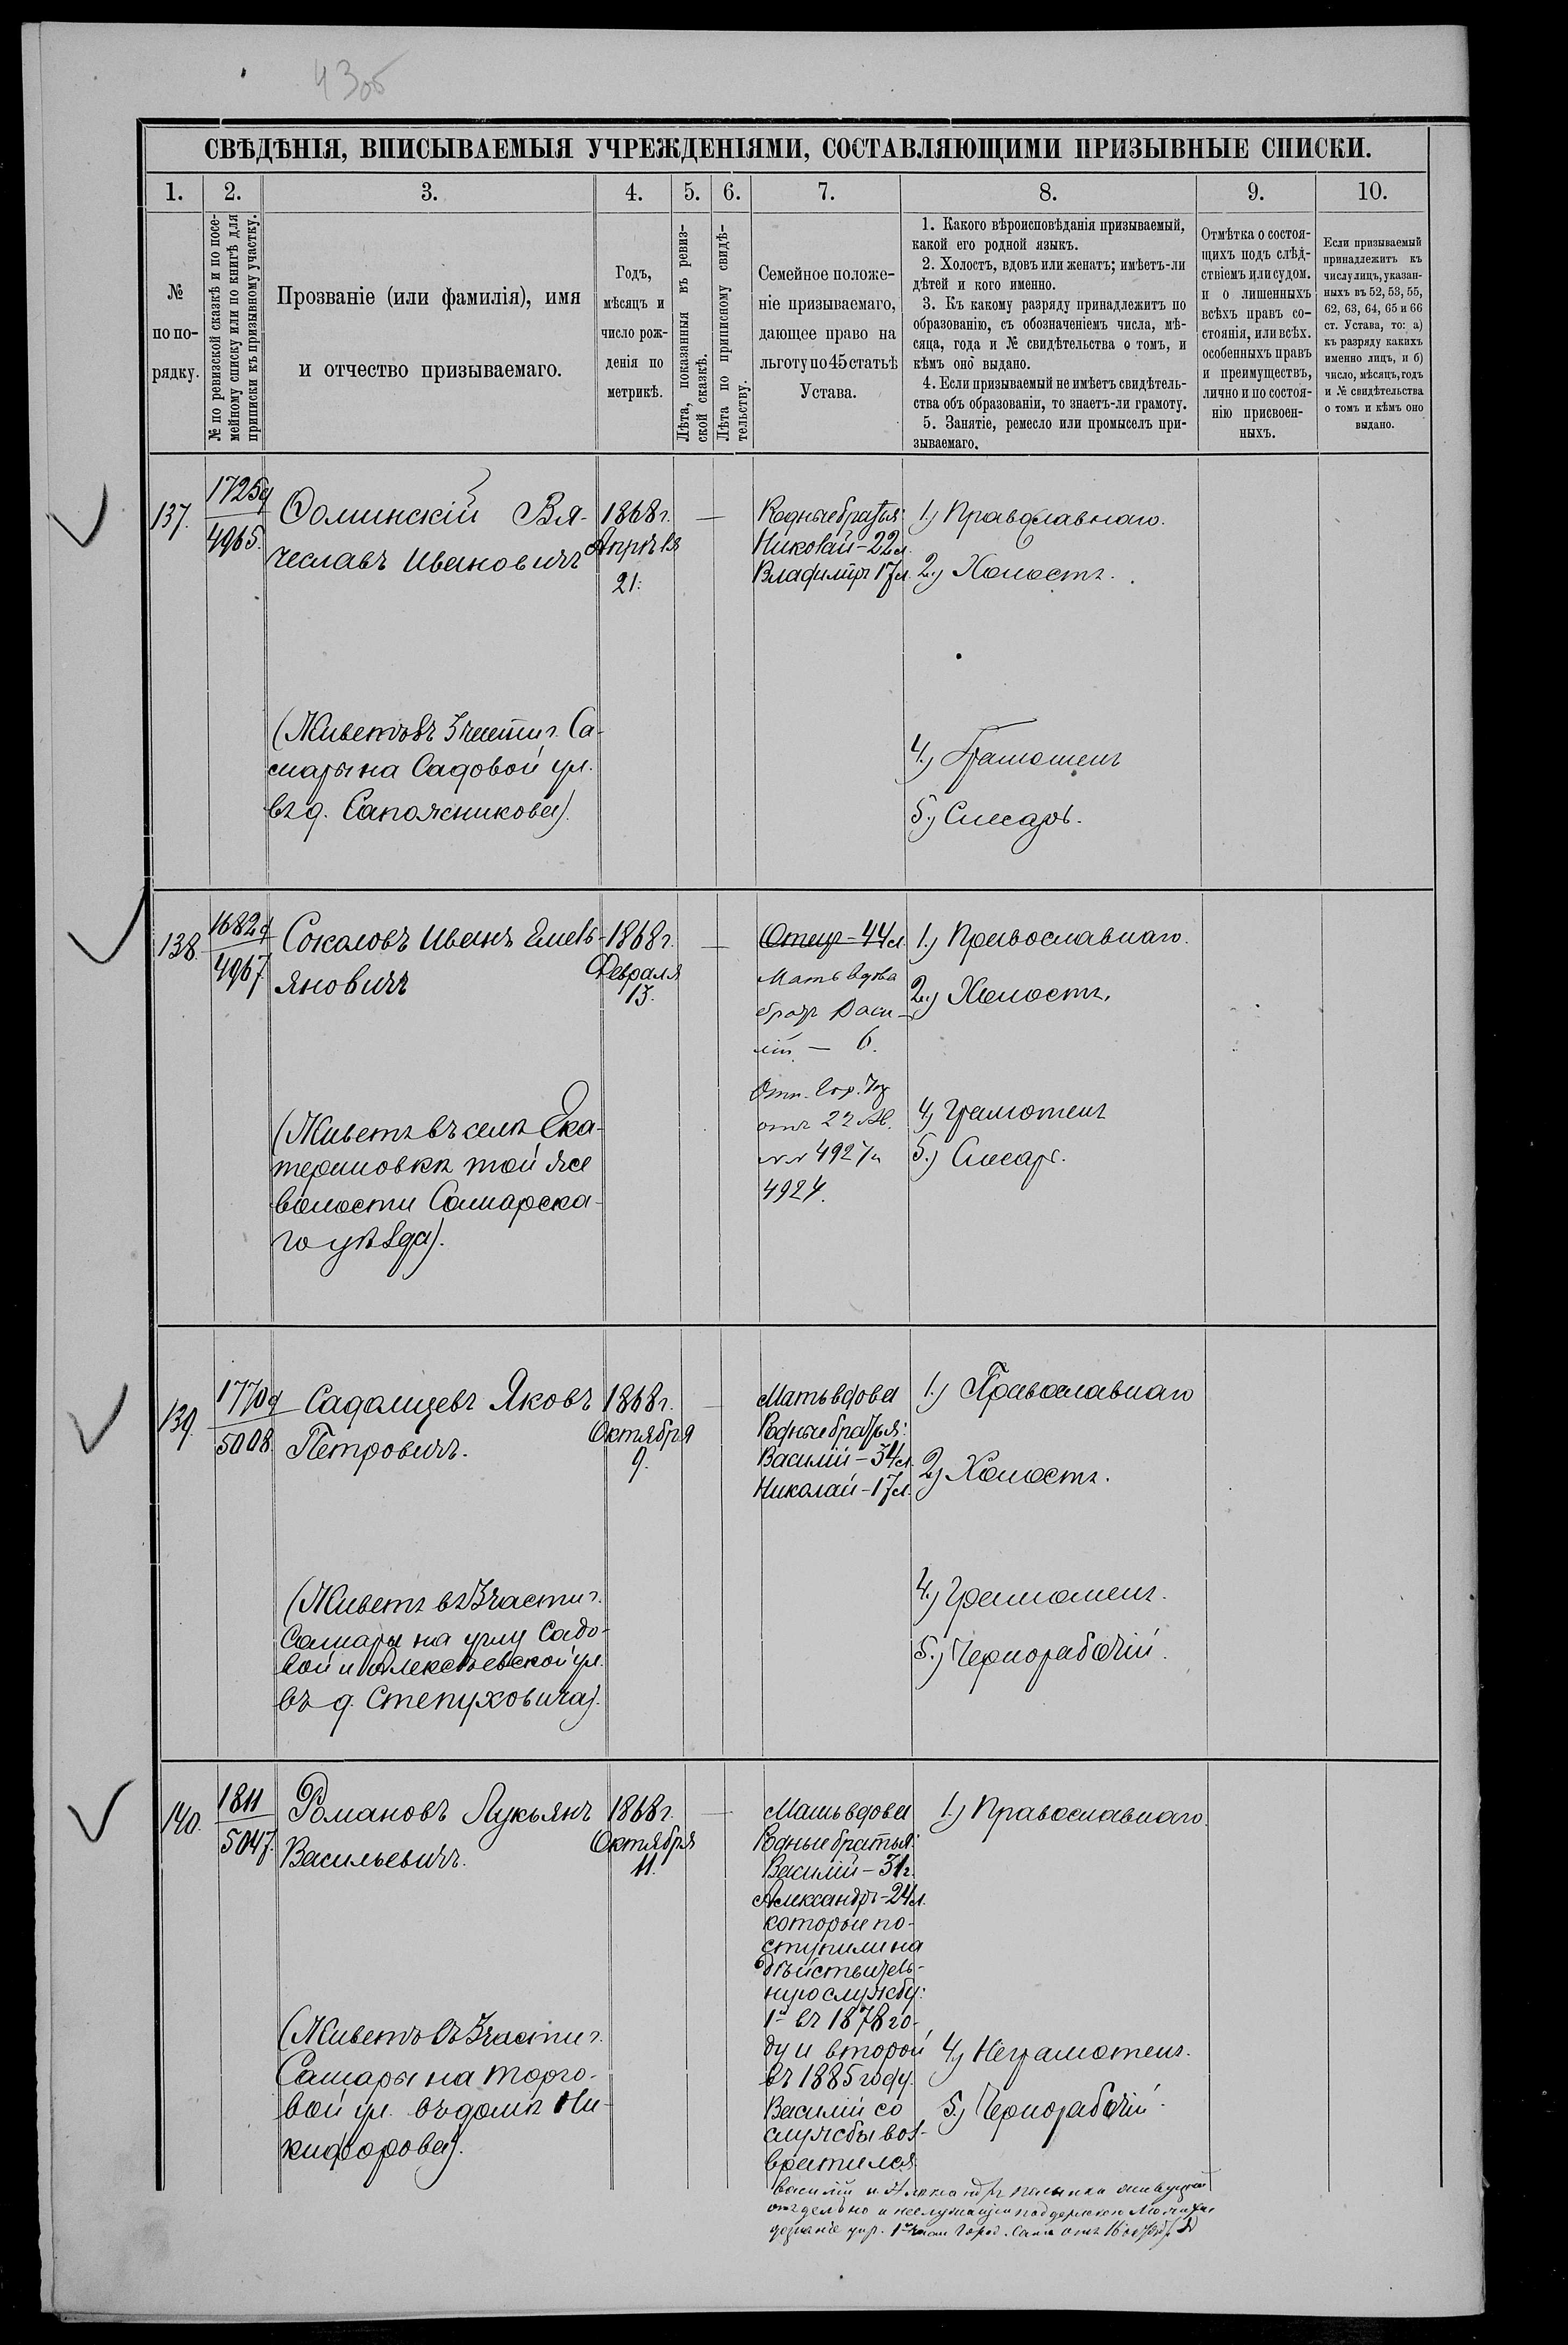 43об
СВѢДѢНІЯ, ВПИСЫВАЕМЫЯ УЧРЕЖДЕНІЯМИ, СОСТАВЛЯЮЩИМИ ПРИЗЫВНЫЕ СПИСКИ.
1. 2. 3. 4. 5. 6. 7. 8. 9. 10.
№
по по-
рядку.
№ по ревизской сказкѣ и по посе-
мейному списку или по книгѣ для
приписки къ призывному участку.
Прозваніе (или фамилія), имя
и отчество призываемаго.
Годъ,
мѣсяцъ и
число рож-
денія по
метрикѣ.
Лѣта, показанныя въ ревиз-
ской сказкѣ.
Лѣта по приписному свидѣ-
тельству.
Семейное положе-
ніе призываемаго,
дающее право на
льготу по 45 статьѣ
Устава.
1. Какого вѣроисповѣданія призываемый,
какой его родной языкъ.
2. Холостъ, вдовъ или женатъ; имѣетъ-ли
дѣтей и кого именно.
3. Къ какому разряду принадлежитъ по
образованію, съ обозначеніемъ числа, мѣ-
сяца, года и № свидѣтельства о томъ, и
кѣмъ оно выдано.
4. Если призываемый не имѣетъ свидѣтель-
ства объ образованіи, то знаетъ-ли грамоту.
5. Занятіе, ремесло или промыселъ при-
зываемаго.
Отмѣтка о состоя-
щихъ подъ слѣд-
ствіемъ или судом.
и о лишенныхъ
всѣхъ правъ со-
стоянія, или всѣх.
особенныхъ правъ
и преимуществъ,
лично и по состоя-
нію присвоен-
ныхъ.
Если призываемый
принадлежитъ къ
числу лицъ, указан-
ныхъ въ 52, 53, 55,
62, 63, 64, 65 и 66
ст. Устава, то: а)
къ разряду какихъ
именно лицъ, и б)
число, мѣсяцъ, годъ
и № свидѣтельства
о томъ и кѣмъ оно
выдано.
137.
1725д
4965.
Фоминскій Вя-
чеславъ Ивановичъ
1868 г.
Апрѣля
21.
—
Родные братья:
Николай – 22 л.
Владиміръ 17 л.
1.) Православнаго.
2.) Холостъ.
(Живетъ въ 3 части г. Са-
мары на Садовой ул.
въ д. Сапожникова).
4.) Грамотенъ
5.) Слесарь.
138.
1682д
4967.
Соколовъ Иванъ Емель-
яновичъ
1868 г.
Февраля
13.
—
Отецъ – 44 л.
Мать вдова
братъ Васи-
лій — 6.
1.) Православнаго.
2.) Холостъ.
от 22
4927 и
4924.
(Живетъ въ селѣ Ека-
териновкѣ той же
волости Самарска-
го уѣзда).
4.) Грамотенъ
5.) Слесарь.
139.
1770д
5008.
Садомцевъ Яковъ
Петровичъ.
1868 г.
Октября
9.
—
Мать вдова
Родные братья:
Василій – 34 л.
Николай – 17 л.
1.) Православнаго
2.) Холостъ.
(Живетъ въ 3 части г.
Самары на углу Садо-
вой и Алексѣевской ул.
въ д. Степуховича).
4.) Грамотенъ.
5.) Чернорабочій.
140.
1811
5047.
Романовъ Лукьянъ
Васильевичъ.
1868 г.
Октября
11.
—
Мать вдова
Родные братья:
Василій – 31 г.
Александръ – 24 л.
которые по-
ступили на
дѣйствитель-
ную службу:
1й въ 1878 го-
ду и второй
въ 1885 году.
Василій со
службы воз-
вратился
1.) Православнаго.
(Живетъ въ 3 части г.
Самары на Торго-
вой ул. въ домѣ Ни-
кифорова).
4.) Неграмотенъ.
5.) Чернорабочій.
Василій и Александръ
отдельно и